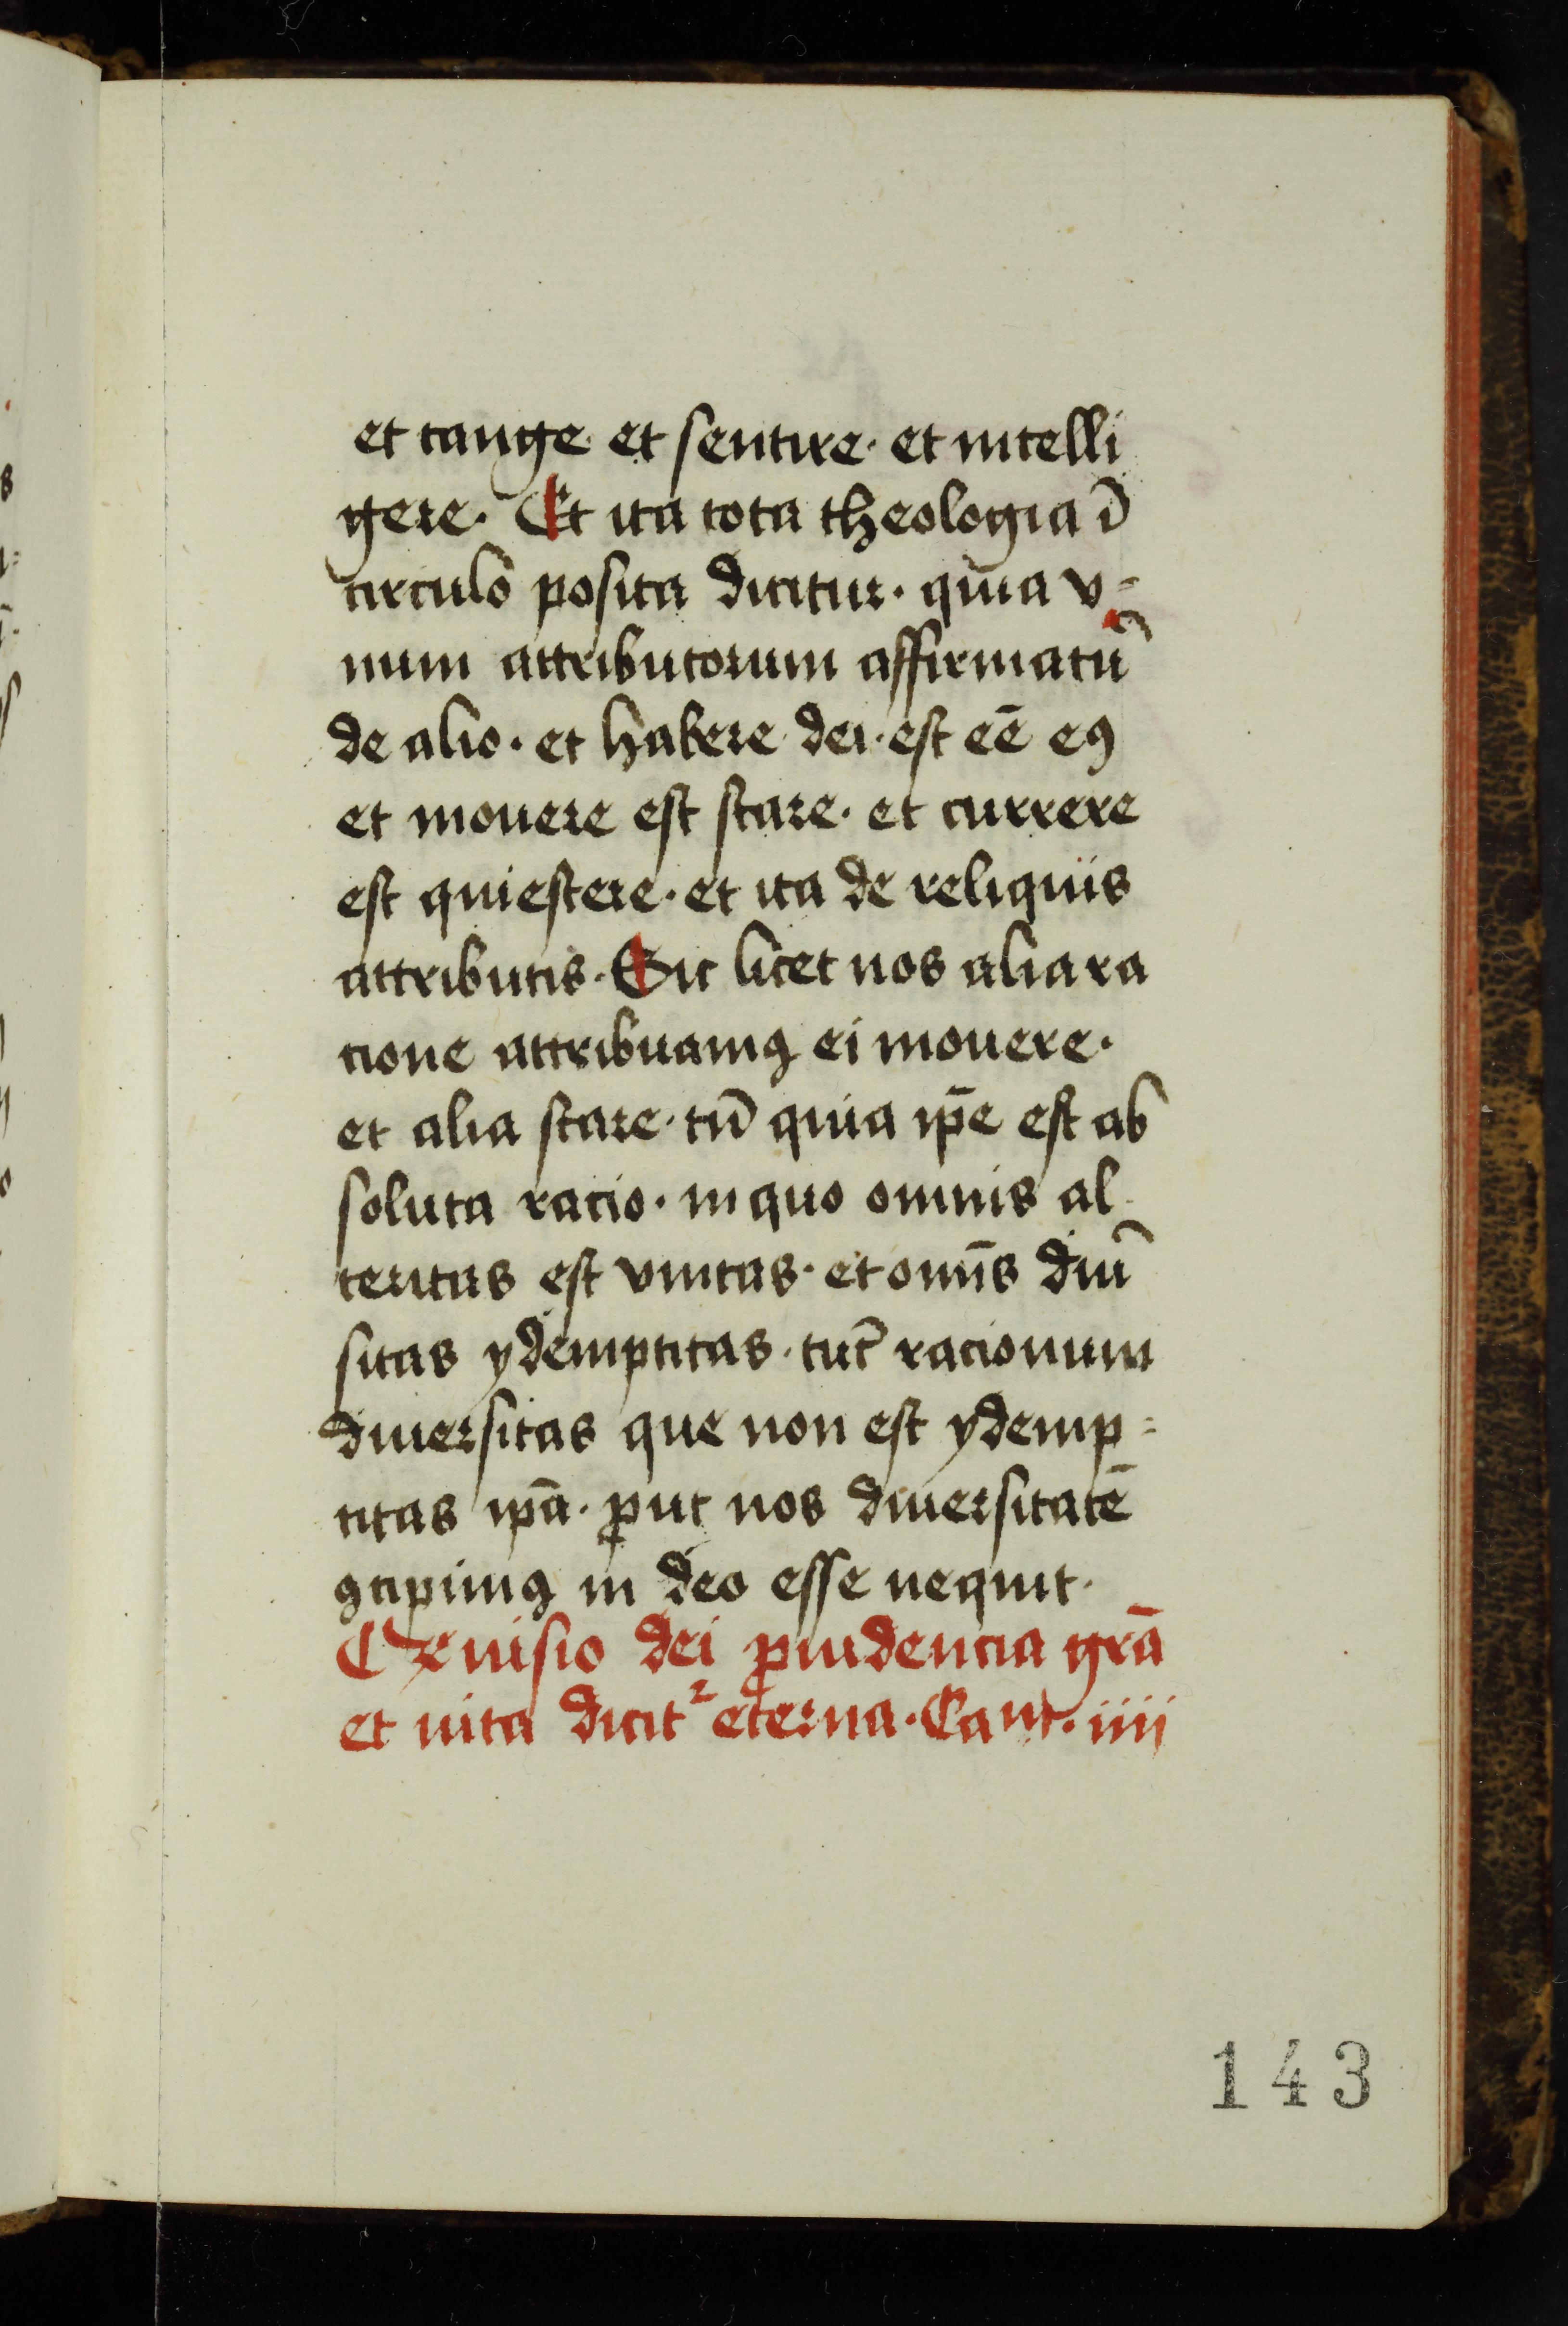 et tange et sentire· et intelli
gere· Et ita tota theologia ī
circulo posita dicitur· quia v=
num attributorum affirmatū
de alio· et habere dei· est eē eꝯ
et mouere est stare· et currere
est quiescere· et ita de reliquiis
attributis· Sic licet nos alia ra
cione attribuamꝯ ei mouere·
et alia stare· tn̄ quia ip̄e est ab
soluta racio· in quo omnis al
teritas est vnitas· et omīs diu̾
sitas ydemptitas· tūc racionum
diuersitas que non est ydemp=
titas ip̄a· ꝓut nos diuersitatē
ꝯcipimꝯ in deo esse nequit·
visio dei ꝓuidencia grā
et uita dicit᷑ eterna· Cant. iiii
143